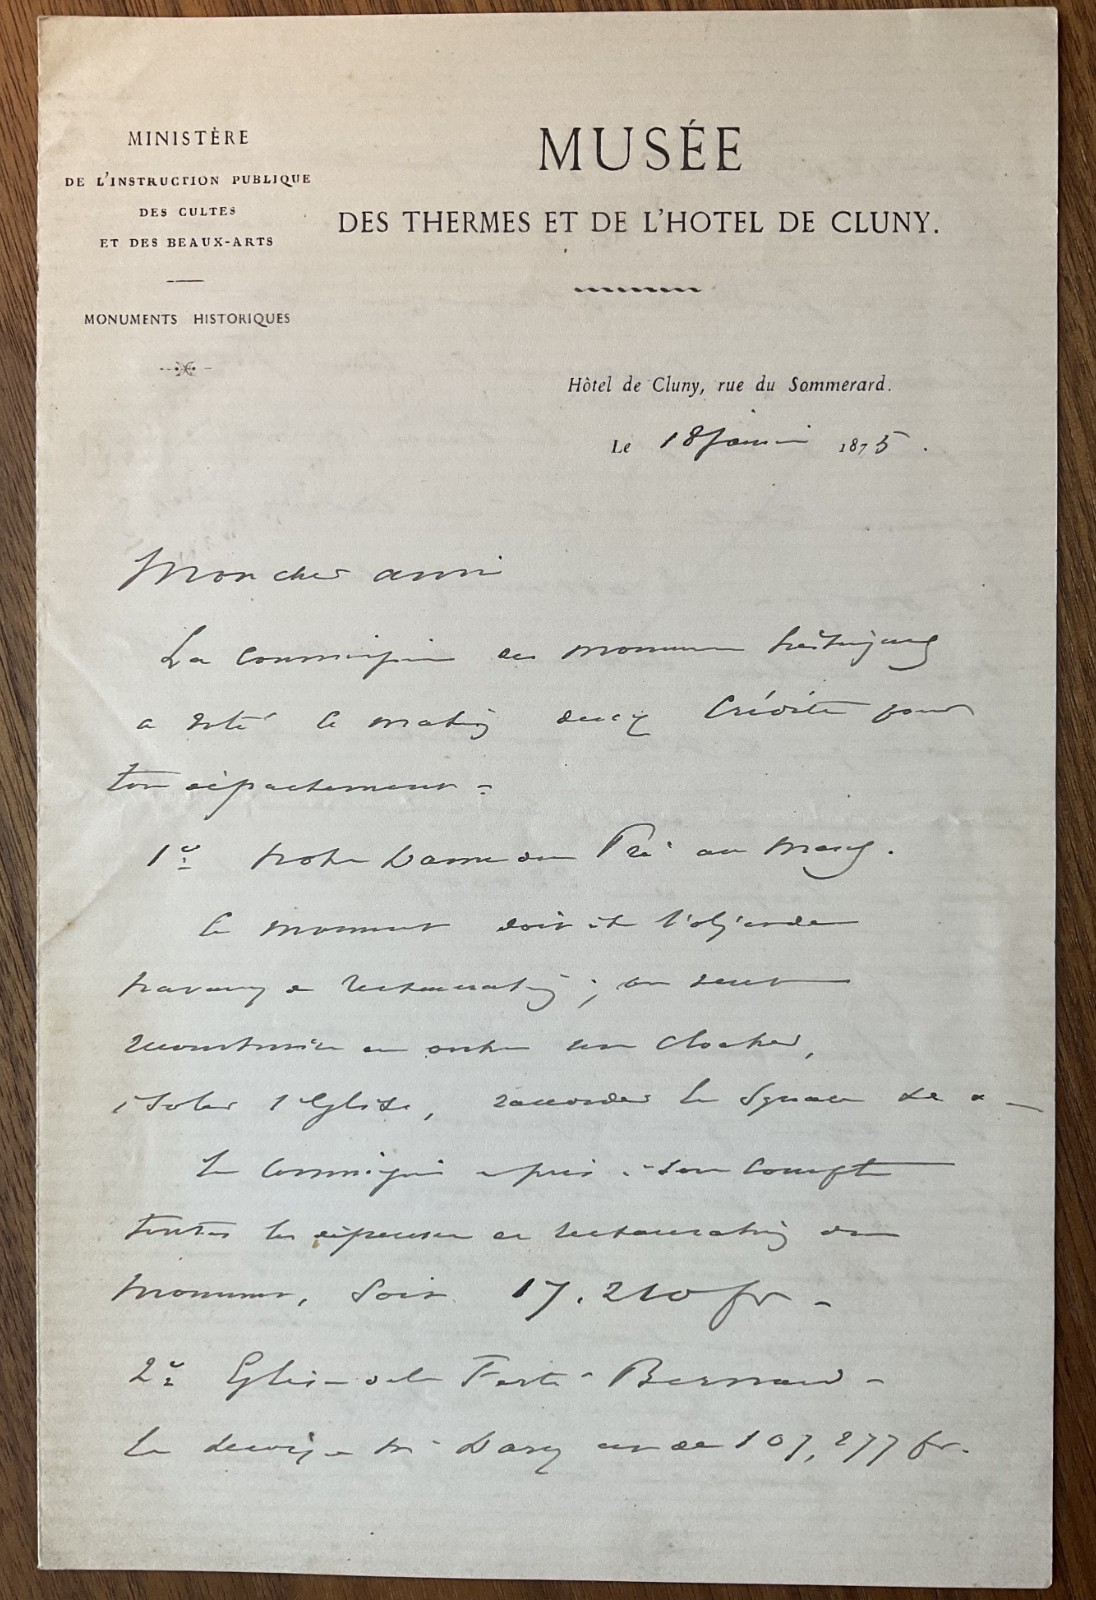 MINISTÈRE
DE L'INSTRUCTION PUBLIQUE
DES CULTES
ET DES BEAUX-ARTS
MONUMENTS HISTORIQUES
MUSÉE
DES THERMES ET DE L'HOTEL DE CLUNY.
Hôtel de Cluny, rue du Sommerard.
Le 18 janvier 1875.
Mon cher ami
La commission des monuments historiques
a voté ce matin deux crédits pour
ton département -
1º Notre Dame du Pré au Mans.
Ce monument doit être l'objet de
travaux de restauration; on veut
reconstruire en outre un clocher,
isoler l'Eglise, raccorder le square &a -
La commission a pris à son compte
toutes les dépenses de restauration du
monument, soit 17.210 fr -
2º Eglise de la Ferté-Bernard -
Le devis de Mr Darcy est de 107,277 fr.